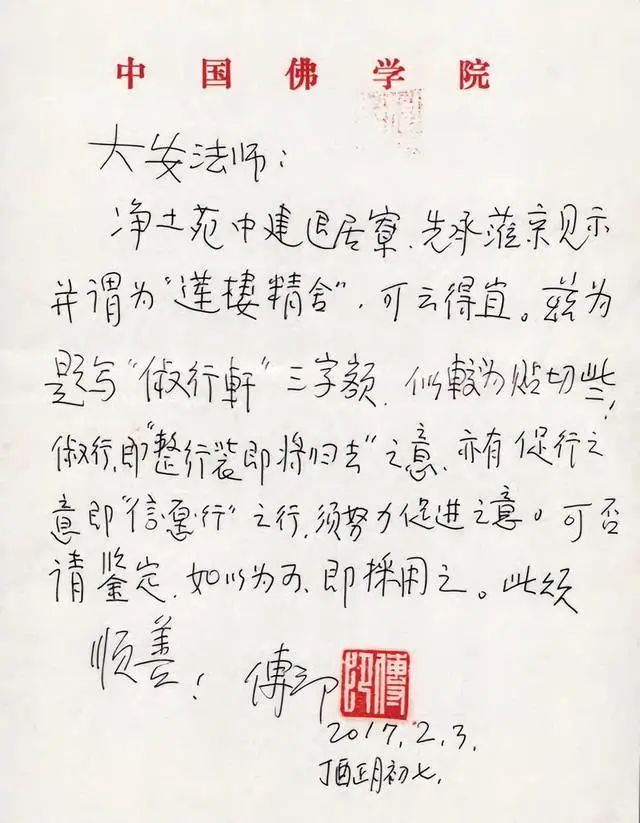 中国佛学院
大安法师：
净土苑中建退居寮，先承京见示
并谓为"蓮樓精舍"，可云得宜。兹为
题写"俶行軒"三字额，似較为贴切些，
俶行，即"整行装即将归去"之意，亦有促行之
意即"信愿行"之行，须努力促进之意。可否
请鉴定，如以为可，即採用之。此颂
顺善！ 傳印 傳印
2017.2.3.
丁酉正月初七.